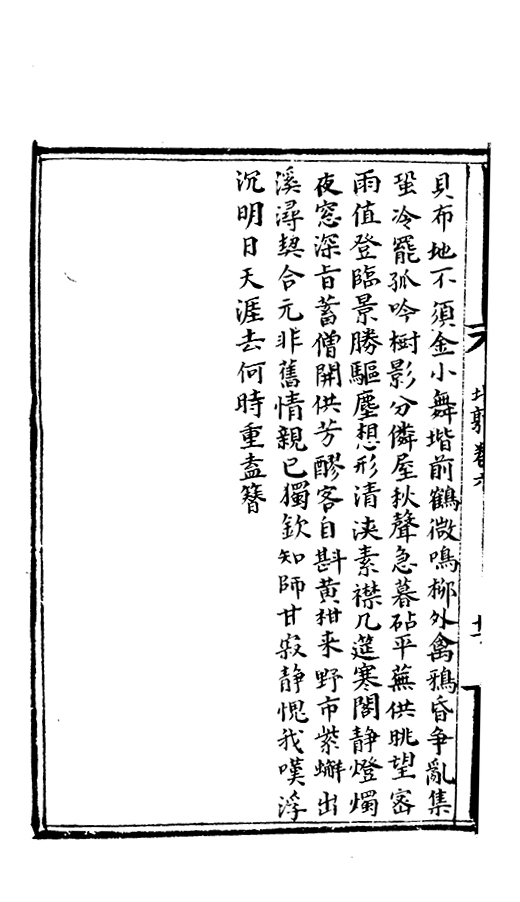 貝布地不須金小舞堦前鶴微鳴柳外禽鴉昏争亂集
蛩冷罷孤吟樹影分鄰屋秋聲急暮砧平蕪供眺望宻
雨值登臨景勝驅塵想形清浹素襟几筵寒閣静燈燭
夜窓深旨蓄僧開供芳醪客自斟黄柑来野市紫蠏出
溪潯契合元非舊情親已獨欽知師甘寂静愧我嘆浮
沉明日天涯去何時重盍簪
卷六